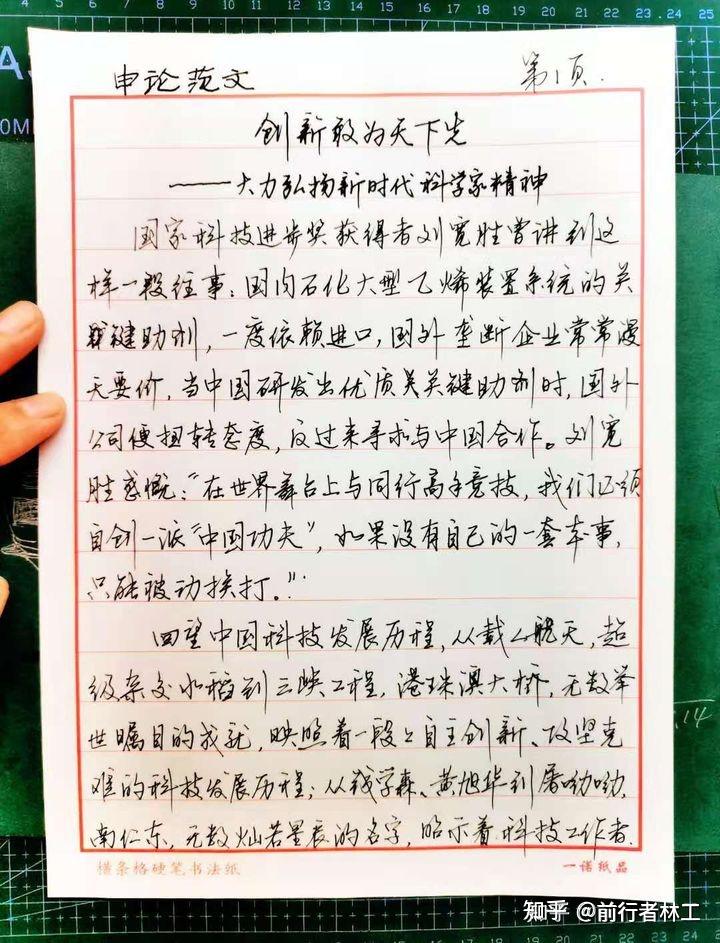 申论范文
第1页.
创新敢为天下先
——大力弘扬新时代科学家精神
国家科技进步奖获得者刘宽胜曾讲到这
样一段往事：国内石化大型乙烯装置系统的关
键助剂，一度依赖进口，国外垄断企业常常漫
天要价，当中国研发出优质关键助剂时，国外
公司便扭转态度，反过来寻求与中国合作。刘宽
胜感慨：“在世界舞台上与同行高手竞技，我们必须
自创一派“中国功夫”，如果没有自己的一套本事，
只能被动挨打。”
回望中国科技发展历程，从载人航天，超
级杂交水稻到三峡工程，港珠澳大桥，无数举
世瞩目的成就，映照着一段段自主创新、攻坚克
难的科技发展历程；从钱学森、黄旭华到屠呦呦、
南仁东，无数灿若星辰的名字，昭示着科技工作者
横条格硬笔书法纸
一诺纸品
知乎 @前行者林工